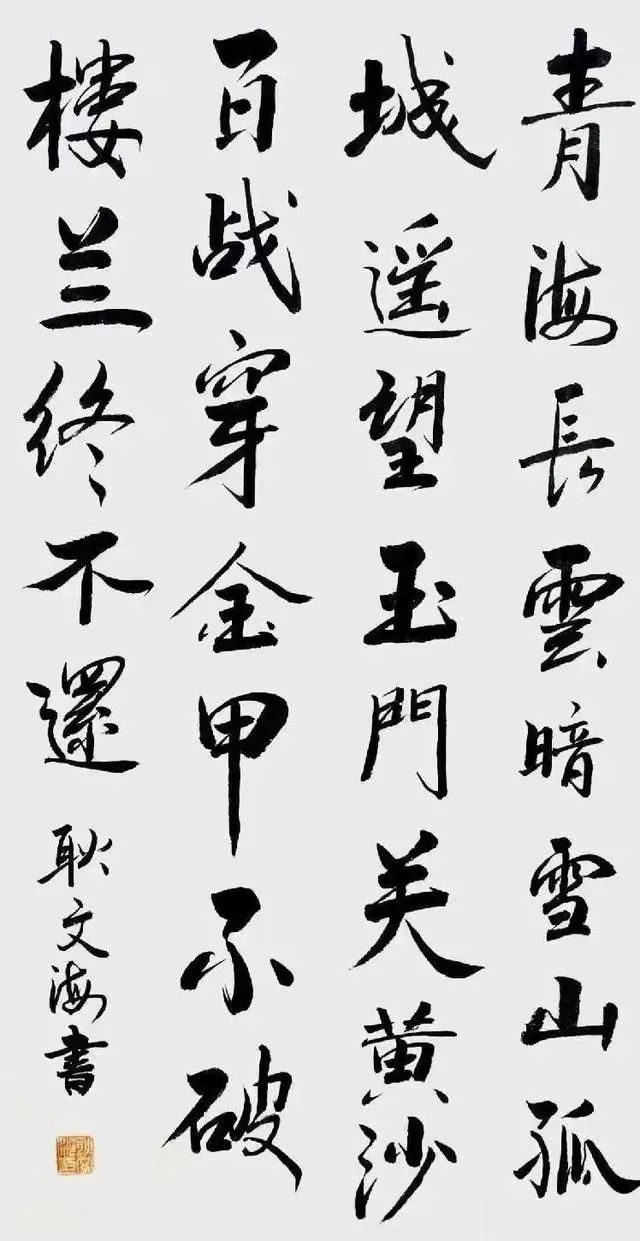 青海長雲暗雪山孤
城遥望玉門关黄沙
百战穿金甲不破
楼兰终不還
耿文海書